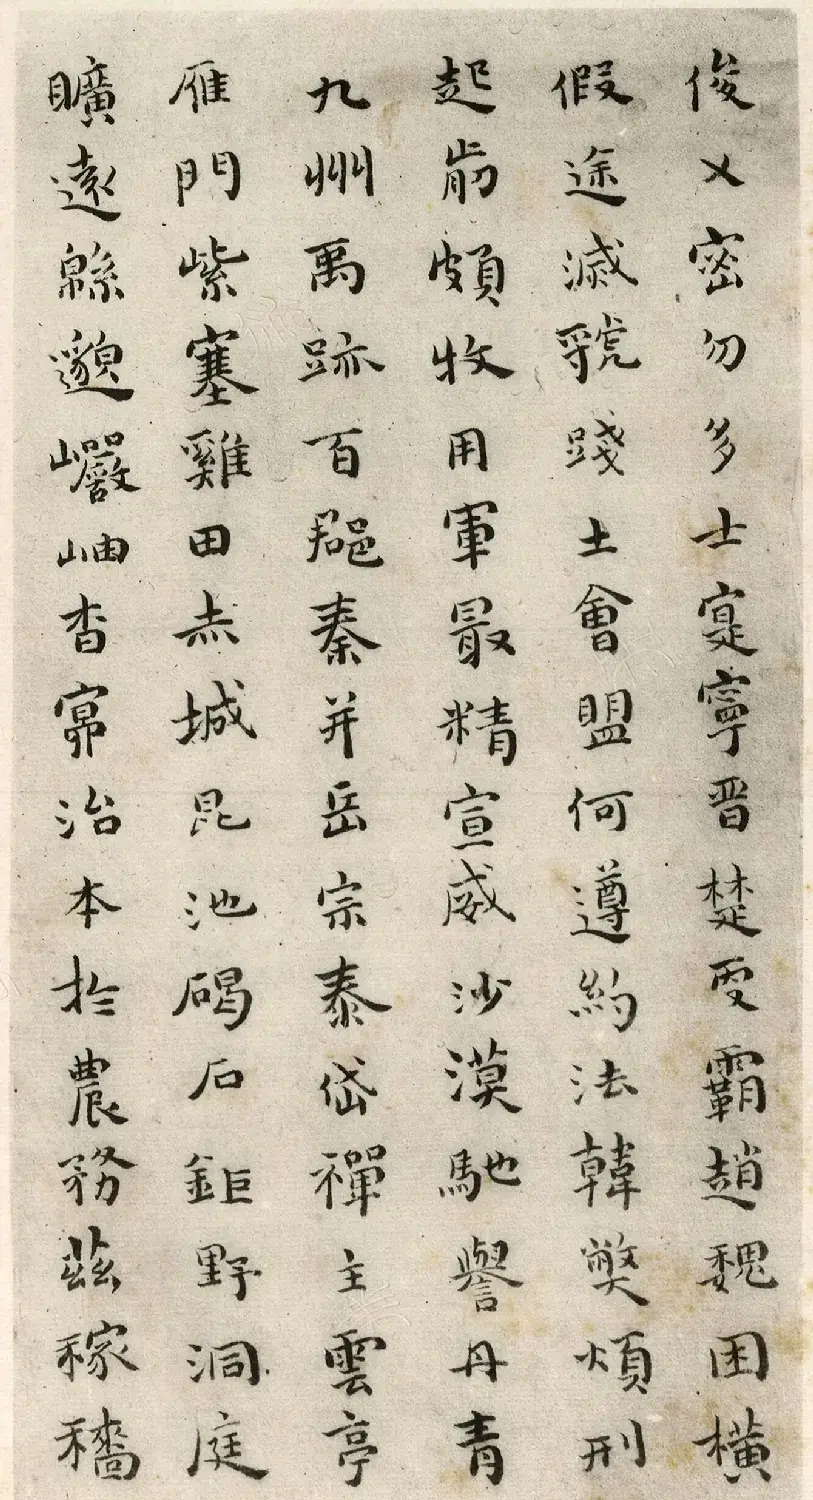 俊乂密勿多士寔寧晋楚更霸趙魏困橫
假途滅虢踐土會盟何遵約法韓獘煩刑
起翦頗牧用軍最精宣威沙漠馳譽丹青
九州禹跡百郡秦并岳宗泰岱禪主雲亭
雁門紫塞雞田赤城昆池碣石鉅野洞庭
曠遠緜邈巖岫杳冥治本扵農務茲稼穡